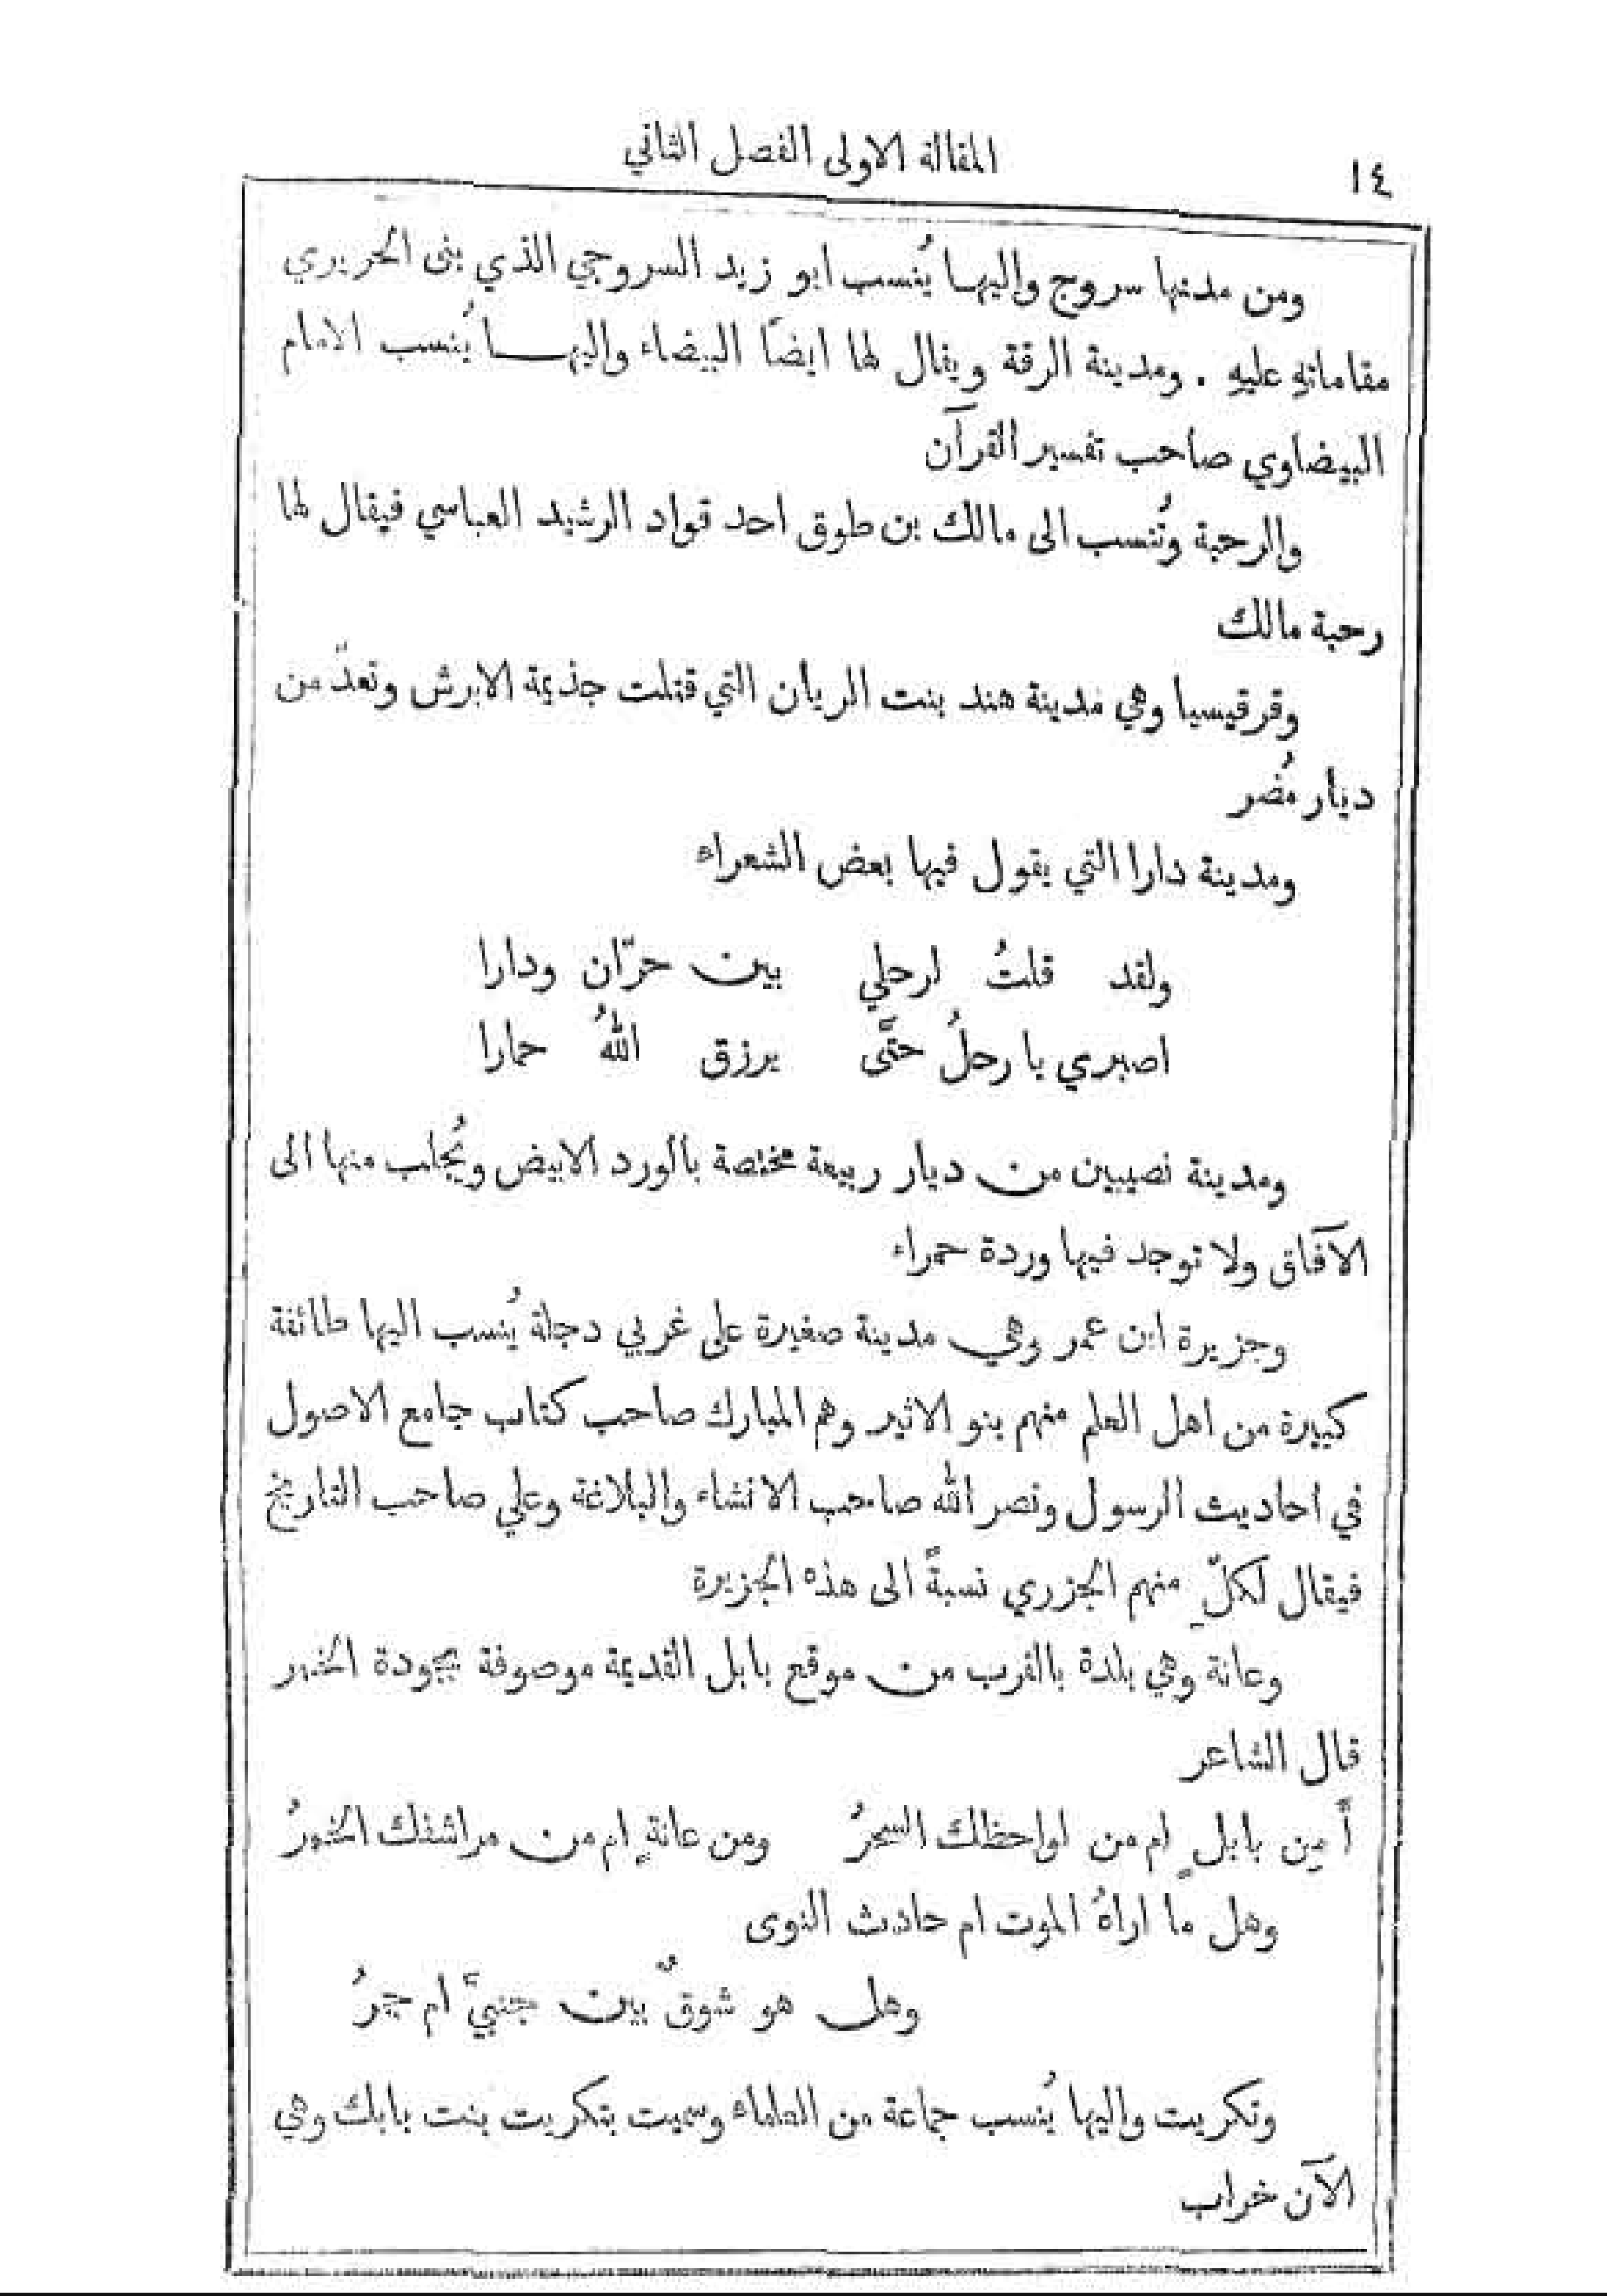 ١٤
المقالة الاولى الفصل الثاني
ومن مدنها سروج واليها يُنسب ابو زيد السروجي الذي بنى الحريري
مقاماتهِ عليهِ . ومدينة الرقة ويقال لها ايضاً البيضاء واليها يُنسب الامام
البيضاوي صاحب تفسير القرآن
والرحبة وتُنسب الى مالك بن طوق احد قواد الرشيد العباسي فيقال لها
رحبة مالك
وقرقيسيا وهي مدينة هند بنت الريان التي قتلت جذيمة الابرش وتعدّ من
ديار مُضر
ومدينة دارا التي يقول فيها بعض الشعراء
ولقد قلتُ لرحلي بين حرّان ودارا
اصبري يا رحلُ حتَّى يرزق اللهُ حمارا
ومدينة نصيبين من ديار ربيعة مختصة بالورد الابيض ويُجلب منها الى
الآفاق ولا توجد فيها وردة حمراء
وجزيرة ابن عمر وهي مدينة صغيرة على غربي دجلة يُنسب اليها طائفة
كبيرة من اهل العلم منهم بنو الاثير وهم المبارك صاحب كتاب جامع الاصول
في احاديث الرسول ونصر الله صاحب الانشاء والبلاغة وعلي صاحب التاريخ
فيقال لكلٍّ منهم الجزري نسبةً الى هذه الجزيرة
وعانة وهي بلدة بالقرب من موقع بابل القديمة موصوفة بجودة الخمر
قال الشاعر
أَ مِن بابلٍ ام من لواحظك السحرُ ومن عانةٍ ام من مراشفك الخمرُ
وهل ما اراهُ الموت ام حادث النوى
وهل هو شوقٌ بين جنبيَّ ام جمرُ
وتكريت واليها يُنسب جماعة من العلماء وسميت بتكريت بنت بابك وهي
الآن خراب